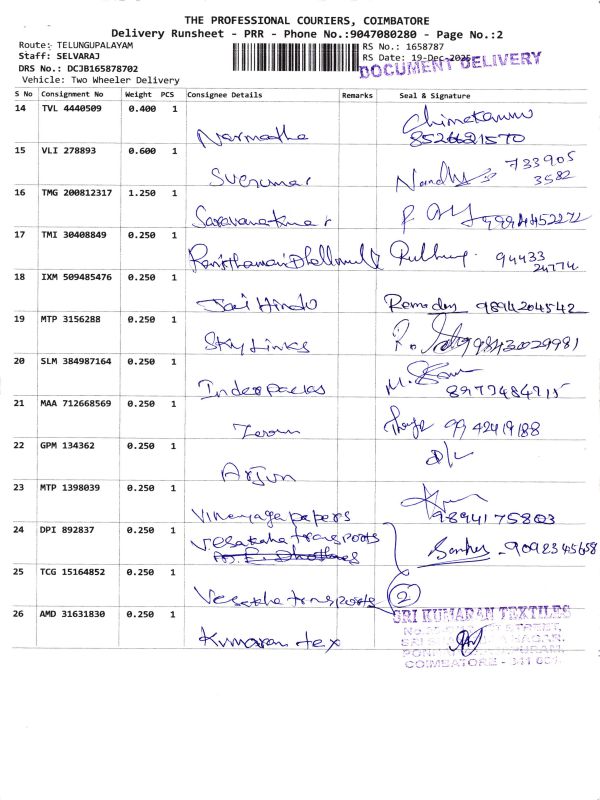 THE PROFESSIONAL COURIERS, COIMBATORE
Delivery Runsheet - PRR - Phone No.:9047080280 - Page No.:2
Route: TELUNGUPALAYAM
Staff: SELVARAJ
DRS No.: DCJB165878702
Vehicle: Two Wheeler Delivery
RS No.: 1658787
RS Date: 19-Dec-2025
DOCUMENT DELIVERY
S No Consignment No Weight PCS Consignee Details Remarks Seal & Signature
14 TVL 4440509 0.400 1
Narmatha 8526621570
15 VLI 278893 0.600 1
733905
3582
16 TMG 200812317 1.250 1
Saravanakumar 9994452272
17 TMI 30408849 0.250 1
94433
24774
18 IXM 509485476 0.250 1
Jai Hindu Ramadoy 9894204542
19 MTP 3156288 0.250 1
Sky Links 9843029981
20 SLM 384987164 0.250 1
Indexpacks
21 MAA 712668569 0.250 1
9942419188
22 GPM 134362 0.250 1
Arjun D/L
23 MTP 1398039 0.250 1
Vinayaga papers 9894175803
24 DPI 892837 0.250 1
Vesataha transpoots
9092345658
25 TCG 15164852 0.250 1
Vesatha transpoots 2
26 AMD 31631830 0.250 1
Kumaran tex
SRI KUMARAN TEXTILES
COIMBATORE - 641 001.